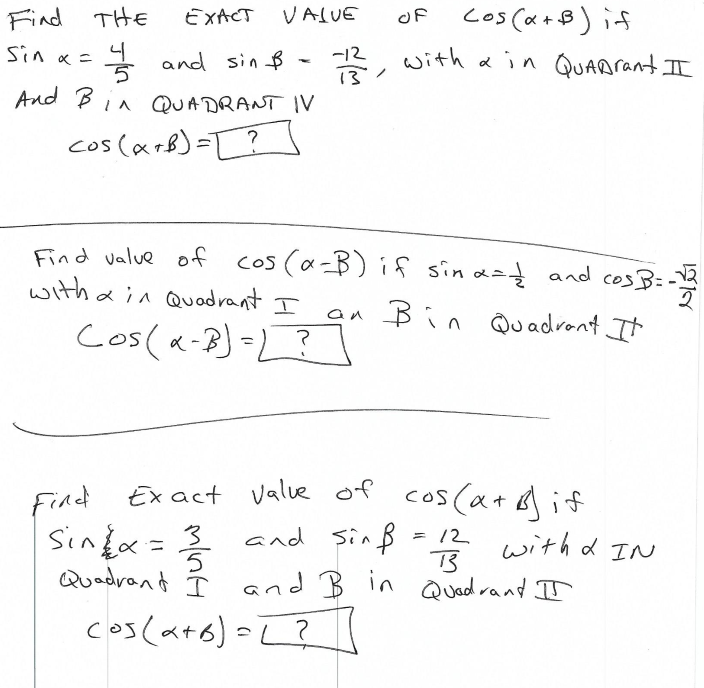 Find THE EXACT VALUE OF Cos(α+β) if
Sin α = 4/5 and sin β = -12/13, with α in QUADrant II
And B in QUADRANT IV
cos(α+B) = ?
Find value of cos(α-B) if sin α = 1/2 and cos B = -√2/2
with α in Quadrant I an B in Quadrant II
Cos(α-B) = ?
Find Exact value of cos(α+B) if
Sin α = 3/5 and sin β = 12/13 with α IN
Quadrant I and B in Quadrant II
cos(α+B) = ?